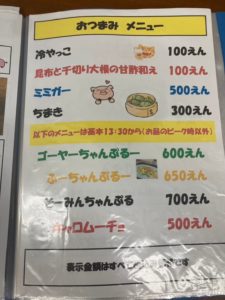 おつまみ メニュー
冷やっこ 100えん
昆布と千切り大根の甘酢和え 100えん
ミミガー 500えん
ちまき 300えん
以下のメニューは基本13:30から(お昼のピーク時以外)
ゴーヤーちゃんぷるー 600えん
ふーちゃんぷるー 650えん
そーみんちゃんぷるー 700えん
コムーチョ 500えん
表示金額はすべて です